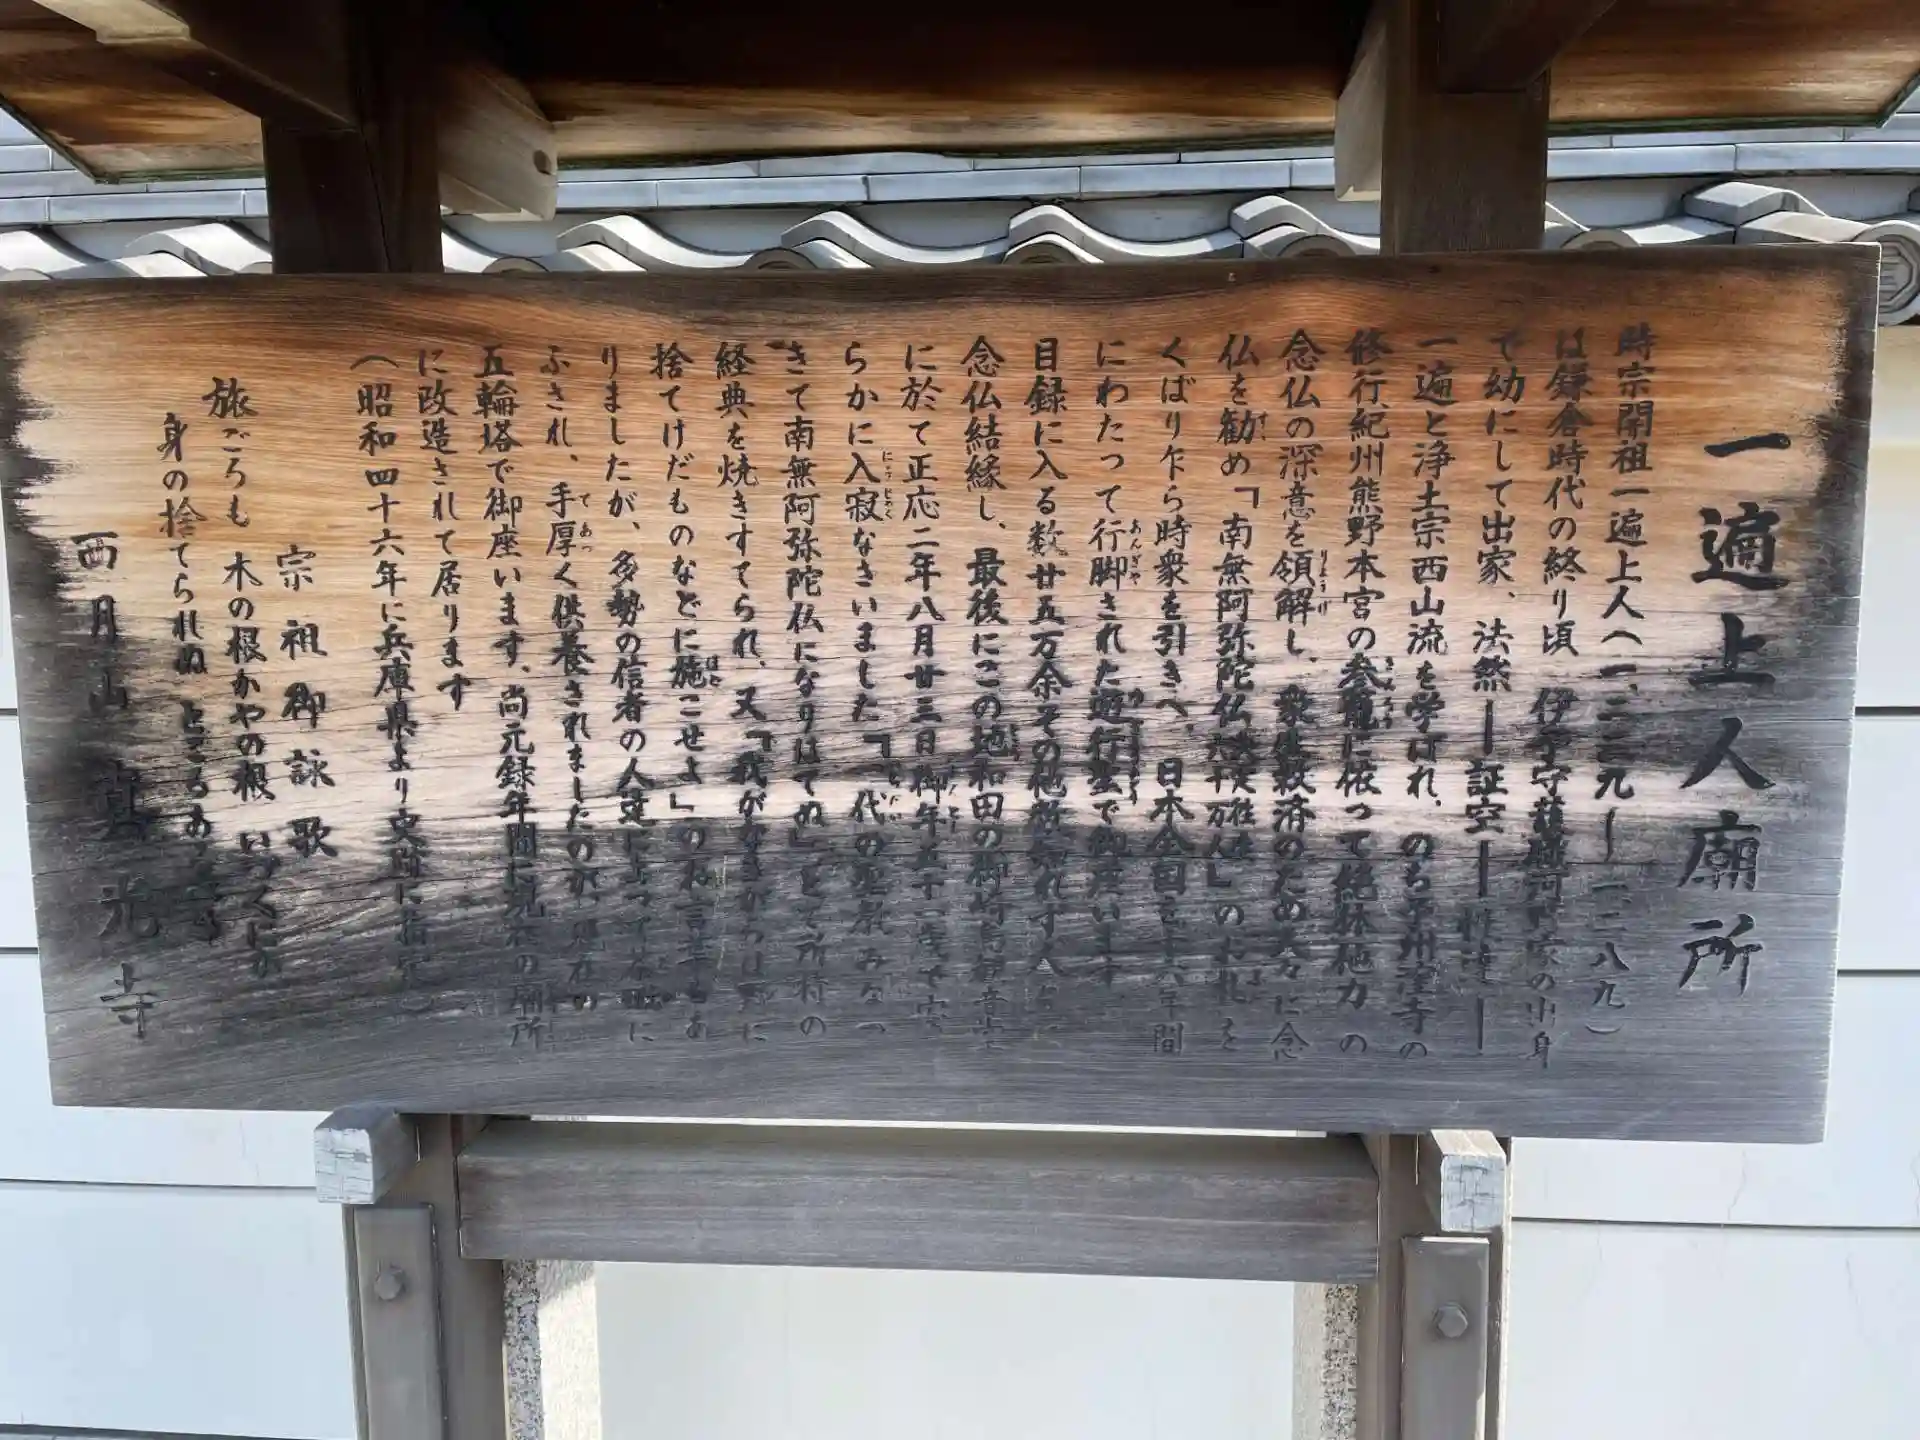 一遍上人廟所
時宗開祖一遍上人(一、二三九〜一二八九)
は鎌倉時代の終り頃 伊予守護 河野家の出身
で幼にして出家、法然ー証空ー ー
一遍と浄土宗西山流を学ばれ、のち予州窪寺の
修行、紀州熊野本宮の参籠に依って 他力の
念仏の深意を領解し、衆生救済のため人々に念
仏を勧め「南無阿弥陀仏 」のお札を
くばり乍ら時衆を引きへ、日本全国を十六年間
にわたって行脚された遊行聖で御座います
目録に入る数廿五万余その他 れず人々と
念仏結縁し、最後にこの地和田の御崎 観音堂
に於て正応二年八月廿三日御年五十一歳で安
らかに入寂なさいました「一代の聖教みなつ
きて南無阿弥陀仏になりはてぬ」とて所持の
経典を焼きすてられ、又「我がなきがらは野に
捨てけだものなどに施こせよ」のね言葉もあ
りましたが、多勢の信者の人達によって荼毗に
ふされ、手厚く供養されましたのが、現在の
五輪塔で御座います、尚元録年間に現在の廟所
に改造されて居ります
(昭和四十六年に兵庫県より史跡に指定)
宗祖御詠歌
旅ごろも 木の根かやの根 いづくにか
身の捨てられぬ ところあるべき
西月山 真光寺